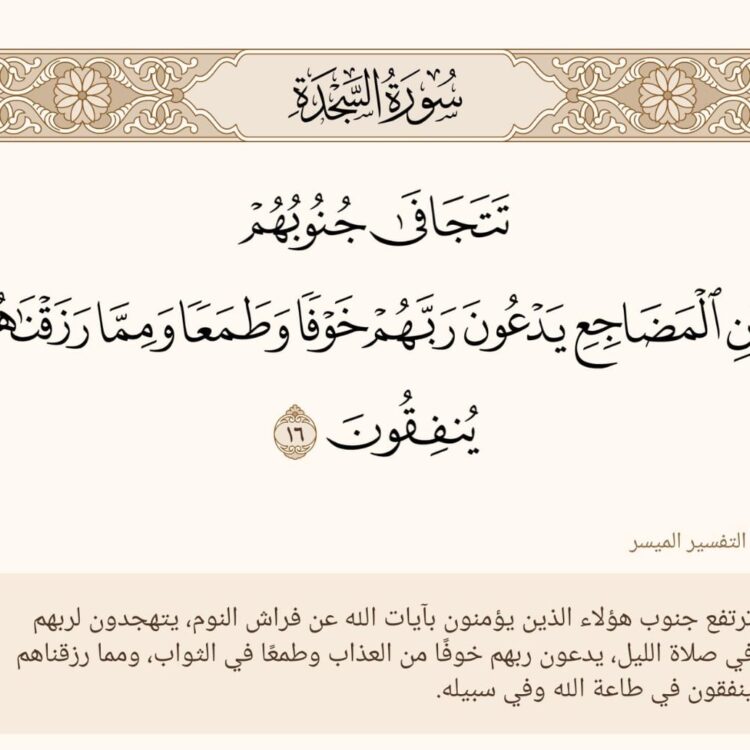 سُورَةُ السَّجْدَةِ
تَتَجَافَىٰ جُنُوبُهُمْ
نِ ٱلْمَضَاجِعِ يَدْعُونَ رَبَّهُمْ خَوْفًا وَطَمَعًا وَمِمَّا رَزَقْنَٰهُ
يُنفِقُونَ ١٦
التفسير الميسر
ترتفع جنوب هؤلاء الذين يؤمنون بآيات الله عن فراش النوم، يتهجدون لربهم
في صلاة الليل، يدعون ربهم خوفًا من العذاب وطمعًا في الثواب، ومما رزقناهم
ينفقون في طاعة الله وفي سبيله.